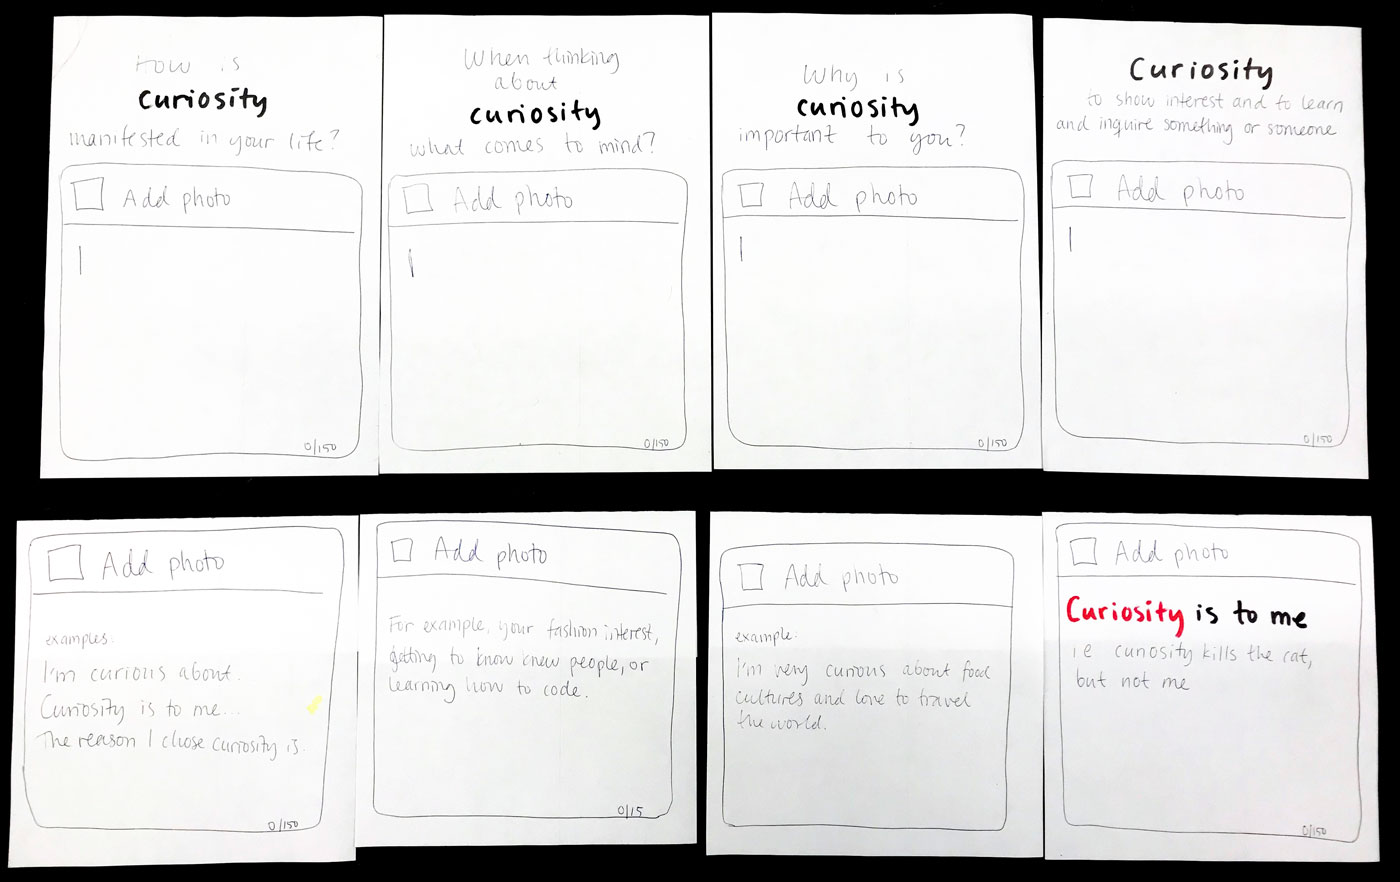 How is
curiosity
manifested in your life?
Add photo
0/150
When thinking
about
curiosity
what comes to mind?
Add photo
0/150
Why is
curiosity
important to you?
Add photo
0/150
Curiosity
to show interest and to learn
and inquire something or someone
Add photo
0/150
Add photo
examples:
I'm curious about.
Curiosity is to me...
The reason I chose curiosity is.
0/150
Add photo
For example, your fashion interest,
getting to know knew people, or
learning how to code.
0/15
Add photo
example:
I'm very curious about food
cultures and love to travel
the world.
Add photo
Curiosity is to me
i.e curiosity kills the cat,
but not me
0/150